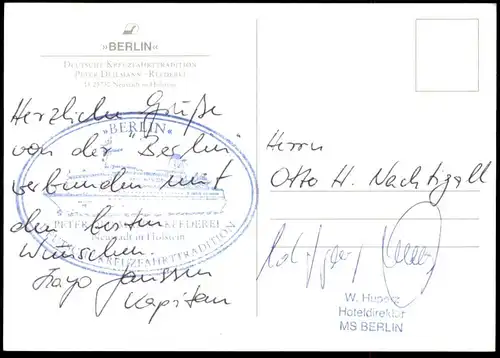 »BERLIN«
DEUTSCHE KREUZFAHRTTRADITION
PETER DEILMANN · REEDEREI
D-23730 Neustadt in Holstein
Herzliche Grüße
von der "Berlin"
verbunden mit
den besten
Wünschen.
Frayo Janssen
Kapitän
»BERLIN«
PETER DEILMANN REEDEREI
Neustadt in Holstein
DEUTSCHE KREUZFAHRTTRADITION
Herrn
Otto H. Nachtigall
W. Huperz
Hoteldirektor
MS BERLIN